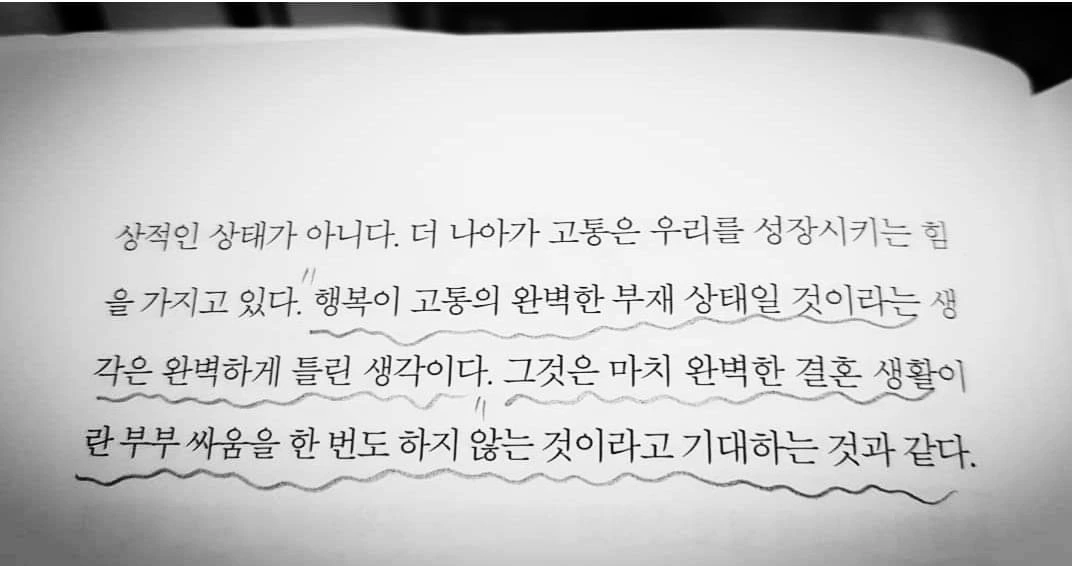 상적인 상태가 아니다. 더 나아가 고통은 우리를 성장시키는 힘
을 가지고 있다. 행복이 고통의 완벽한 부재 상태일 것이라는 생
각은 완벽하게 틀린 생각이다. 그것은 마치 완벽한 결혼 생활이
란 부부 싸움을 한 번도 하지 않는 것이라고 기대하는 것과 같다.